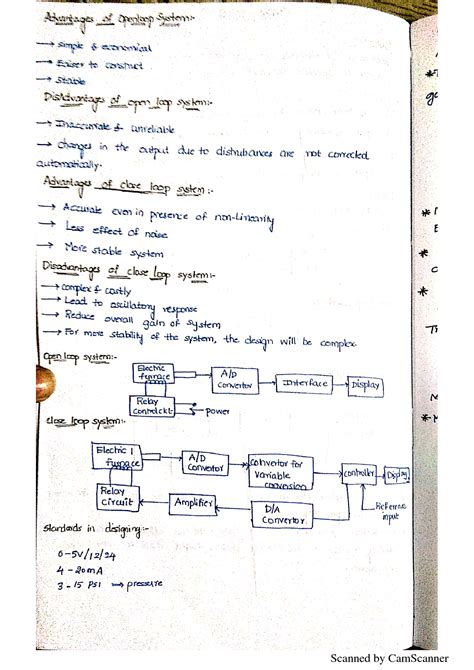 Advantages of openloop system:-
→ simple & economical
→ Easier to construct
→ stable
Disadvantages of open loop system:-
→ Inaccurate & unreliable
→ changes in the output due to disturbances are not corrected
automatically.
Advantages of close loop system :-
→ Accurate even in presence of non-linearity
→ Less effect of noise
→ More stable system
Disadvantages of close loop system:-
→ complex & costly
→ Lead to oscillatory response
→ Reduce overall gain of system
→ For more stability of the system, the design will be complex
Open loop system:-
Electric
furnace
A/D
Convertor
Interface
Display
Relay
power
Close loop system:-
Electric
furnace
A/D
Convertor
Convertor for
variable
conversion
controller
Display
Relay
circuit
Amplifier
D/A
Convertor
Reference
input
standards in designing:-
0-5V/12/24
4-20mA
3-15 PSI → pressure
Scanned by CamScanner